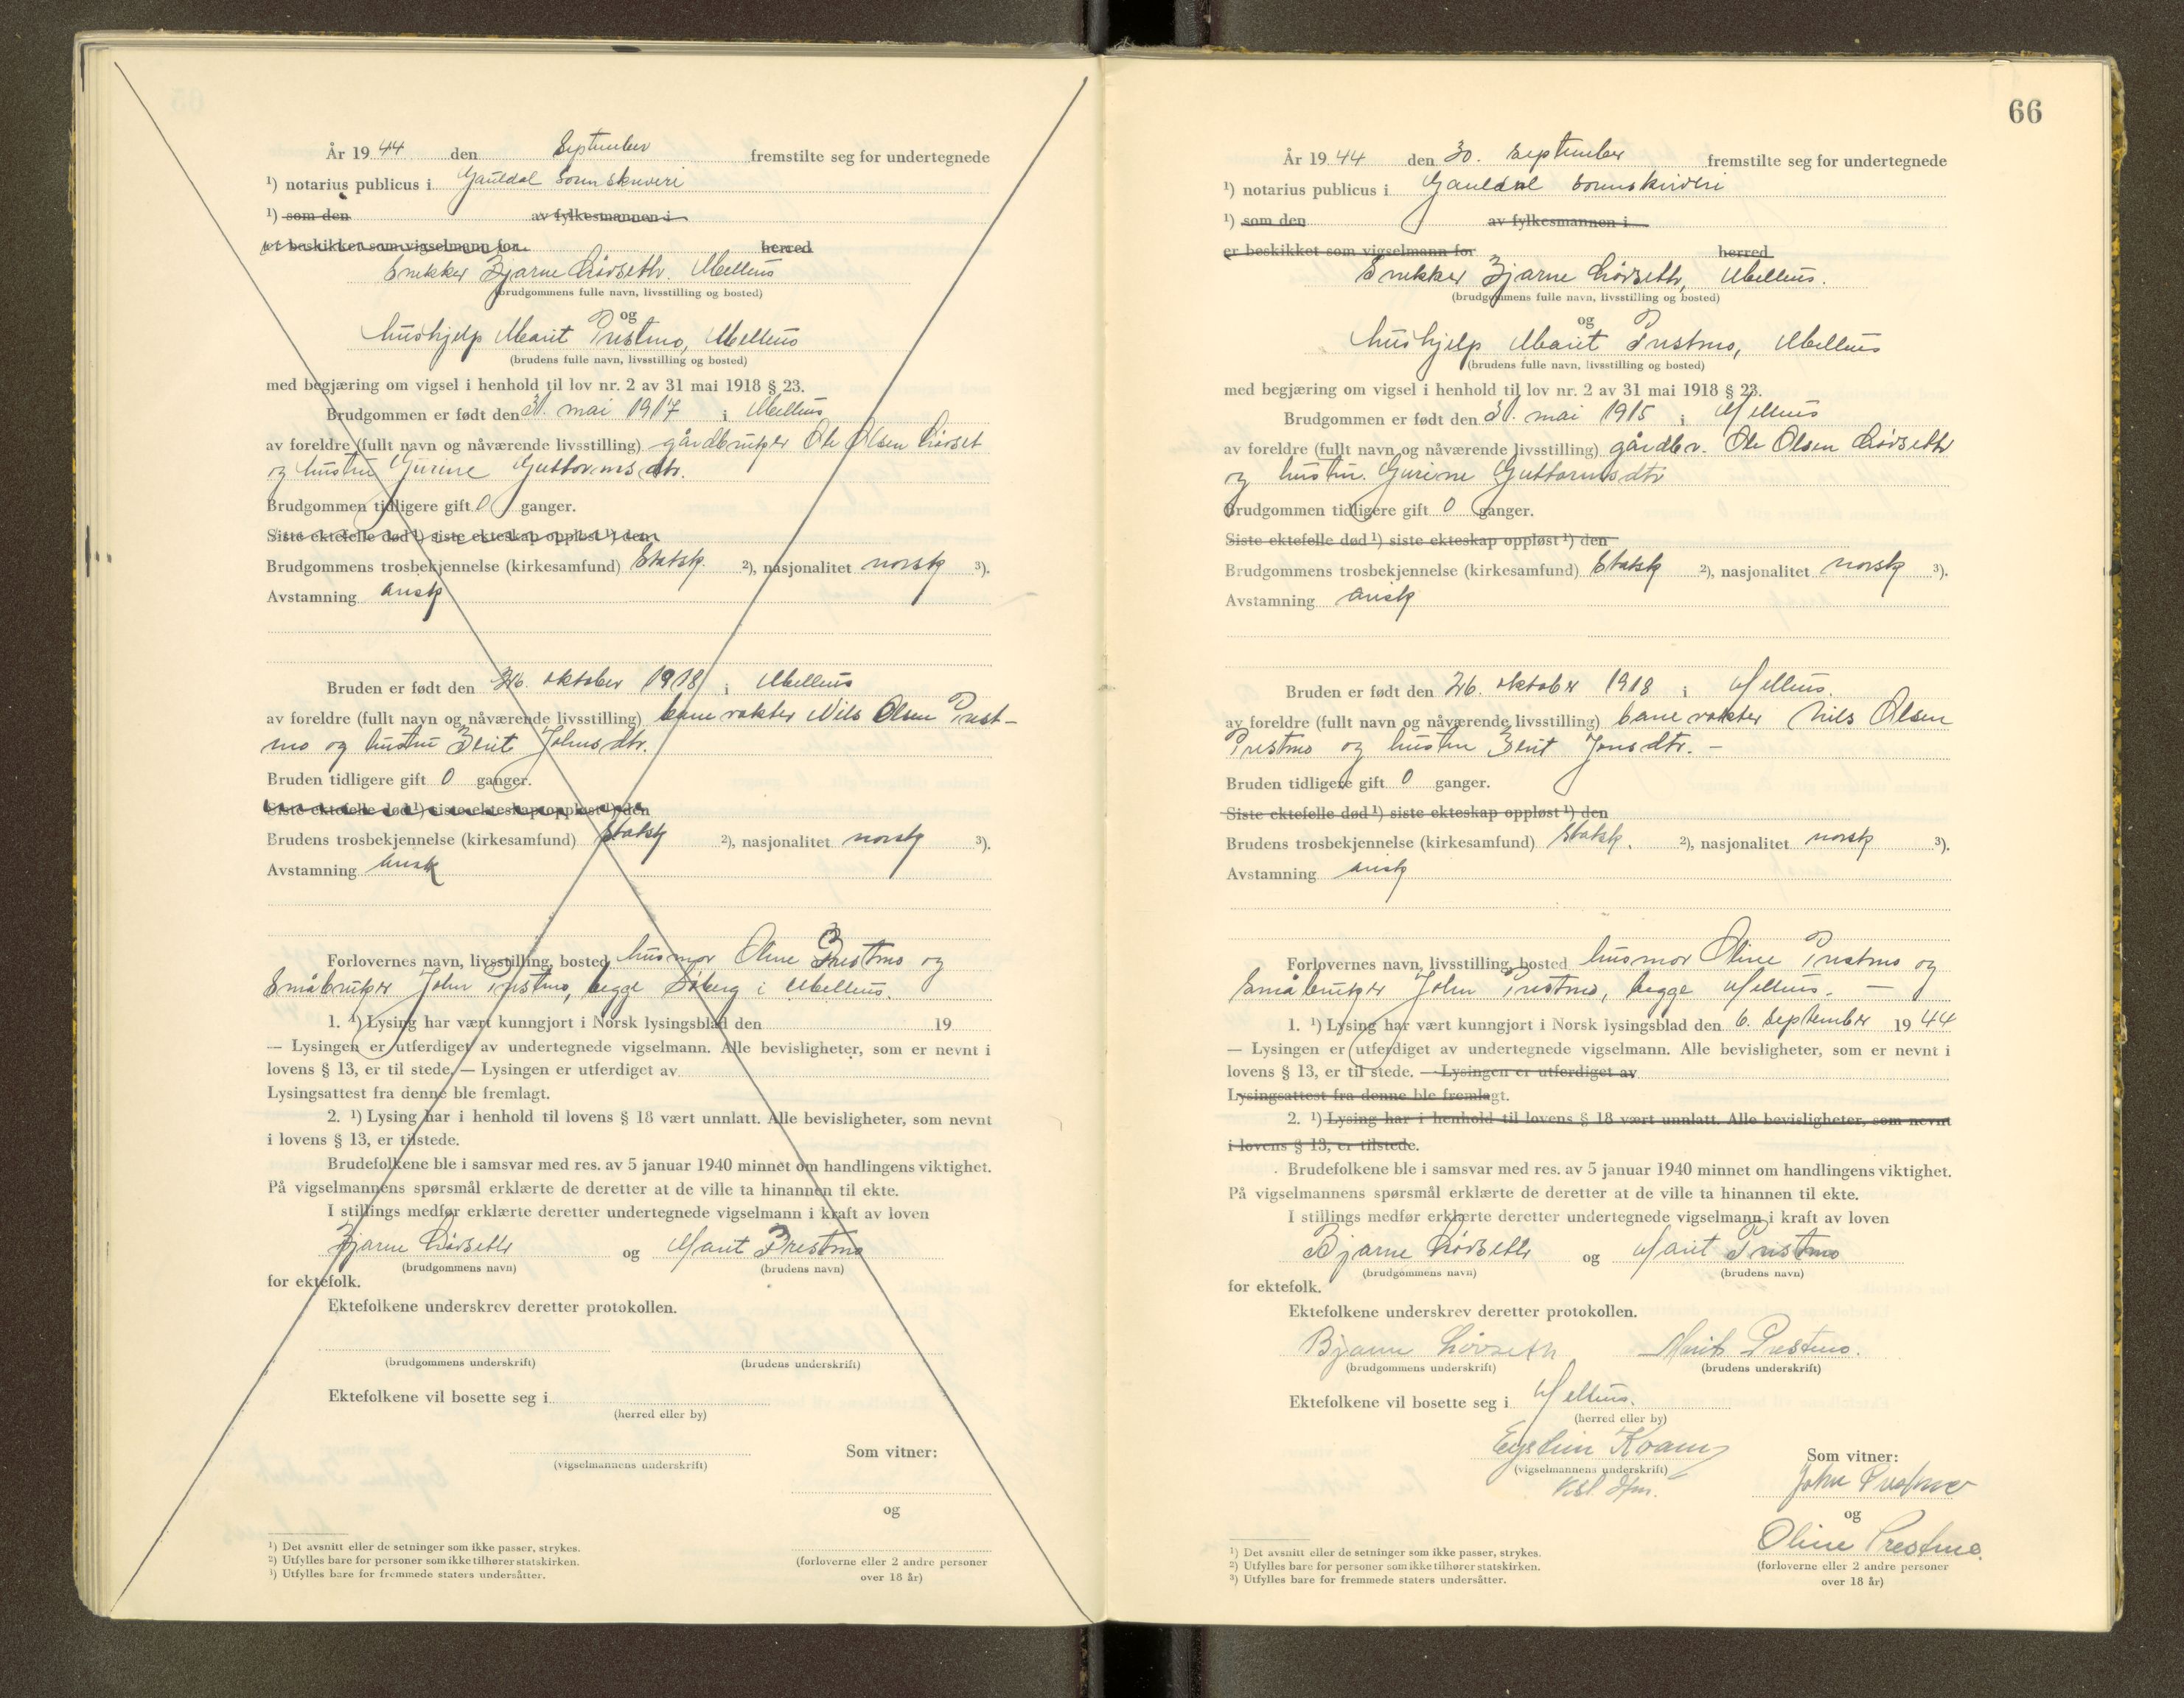 År 19 44 den September fremstilte seg for undertegnede
¹) notarius publicus i Gauldal Sorenskriveri
¹) som den av fylkesmannen i
er beskikket som vigselmann for herred
Snekker Bjarne Løvseth. Melhus
(brudgommens fulle navn, livsstilling og bosted)
og
hushjelp Marit Prestmo, Melhus
(brudens fulle navn, livsstilling og bosted)
med begjæring om vigsel i henhold til lov nr. 2 av 31 mai 1918 § 23.
Brudgommen er født den 31. mai 1917 i Melhus
av foreldre (fullt navn og nåværende livsstilling) gårdbruker Ole Olsen Løvset
og hustru Gurine Guttormsdtr.
Brudgommen tidligere gift 0 ganger.
Siste ektefelle død ¹) siste ekteskap oppløst ¹) den
Brudgommens trosbekjennelse (kirkesamfund) Statsk. ²), nasjonalitet norsk ³).
Avstamning arisk
Bruden er født den 26. oktober 1918 i Melhus
av foreldre (fullt navn og nåværende livsstilling) banevokter Nils Olsen Prest-
mo og hustru Berit Johnsdtr.
Bruden tidligere gift 0 ganger.
Siste ektefelle død ¹) siste ekteskap oppløst ¹) den
Brudens trosbekjennelse (kirkesamfund) Statsk ²), nasjonalitet norsk ³).
Avstamning arisk
Forlovernes navn, livsstilling, bosted husmor Oline Prestmo og
Småbruker John Prestmo, begge Søberg i Melhus.
1. ¹) Lysing har vært kunngjort i Norsk lysingsblad den 19
— Lysingen er utferdiget av undertegnede vigselmann. Alle bevisligheter, som er nevnt i
lovens § 13, er til stede. — Lysingen er utferdiget av
Lysingsattest fra denne ble fremlagt.
2. ¹) Lysing har i henhold til lovens § 18 vært unnlatt. Alle bevisligheter, som nevnt
i lovens § 13, er tilstede.
Brudefolkene ble i samsvar med res. av 5 januar 1940 minnet om handlingens viktighet.
På vigselmannens spørsmål erklærte de deretter at de ville ta hinannen til ekte.
I stillings medfør erklærte deretter undertegnede vigselmann i kraft av loven
Bjarne Løvseth og Marit Prestmo
(brudgommens navn) (brudens navn)
for ektefolk.
Ektefolkene underskrev deretter protokollen.
(brudgommens underskrift) (brudens underskrift)
Ektefolkene vil bosette seg i
(herred eller by)
Som vitner:
(vigselmannens underskrift)
og
¹) Det avsnitt eller de setninger som ikke passer, strykes.
²) Utfylles bare for personer som ikke tilhører statskirken.
³) Utfylles bare for fremmede staters undersåtter.
(forloverne eller 2 andre personer
over 18 år)
66
År 19 44 den 30. september fremstilte seg for undertegnede
¹) notarius publicus i Gauldal sorenskriveri
¹) som den av fylkesmannen i
er beskikket som vigselmann for herred
Snekker Bjarne Løvseth, Melhus.
(brudgommens fulle navn, livsstilling og bosted)
og
hushjelp Marit Prestmo, Melhus
(brudens fulle navn, livsstilling og bosted)
med begjæring om vigsel i henhold til lov nr. 2 av 31 mai 1918 § 23.
Brudgommen er født den 31. mai 1915 i Melhus
av foreldre (fullt navn og nåværende livsstilling) gårdbr. Ole Olsen Løvseth
og hustru. Gurine Guttormsdtr
Brudgommen tidligere gift 0 ganger.
Siste ektefelle død ¹) siste ekteskap oppløst ¹) den
Brudgommens trosbekjennelse (kirkesamfund) Statsk ²), nasjonalitet norsk ³).
Avstamning arisk
Bruden er født den 26. oktober 1918 i Melhus.
av foreldre (fullt navn og nåværende livsstilling) banevokter Nils Olsen
Prestmo og hustru Berit Jonsdtr. —
Bruden tidligere gift 0 ganger.
Siste ektefelle død ¹) siste ekteskap oppløst ¹) den
Brudens trosbekjennelse (kirkesamfund) Statsk. ²), nasjonalitet norsk ³).
Avstamning arisk
Forlovernes navn, livsstilling, bosted husmor Oline Prestmo og
Småbruker John Prestmo, begge Melhus. —
1. ¹) Lysing har vært kunngjort i Norsk lysingsblad den 6. september 19 44
— Lysingen er utferdiget av undertegnede vigselmann. Alle bevisligheter, som er nevnt i
lovens § 13, er til stede. — Lysingen er utferdiget av
Lysingsattest fra denne ble fremlagt.
2. ¹) Lysing har i henhold til lovens § 18 vært unnlatt. Alle bevisligheter, som nevnt
i lovens § 13, er tilstede.
Brudefolkene ble i samsvar med res. av 5 januar 1940 minnet om handlingens viktighet.
På vigselmannens spørsmål erklærte de deretter at de ville ta hinannen til ekte.
I stillings medfør erklærte deretter undertegnede vigselmann i kraft av loven
Bjarne Løvseth og Marit Prestmo
(brudgommens navn) (brudens navn)
for ektefolk.
Ektefolkene underskrev deretter protokollen.
Bjarne Løvseth Marit Prestmo.
(brudgommens underskrift) (brudens underskrift)
Ektefolkene vil bosette seg i Melhus.
(herred eller by)
Eystein Kvam
Som vitner:
(vigselmannens underskrift)
John Prestmo
og
Oline Prestmo.
¹) Det avsnitt eller de setninger som ikke passer, strykes.
²) Utfylles bare for personer som ikke tilhører statskirken.
³) Utfylles bare for fremmede staters undersåtter.
(forloverne eller 2 andre personer
over 18 år)